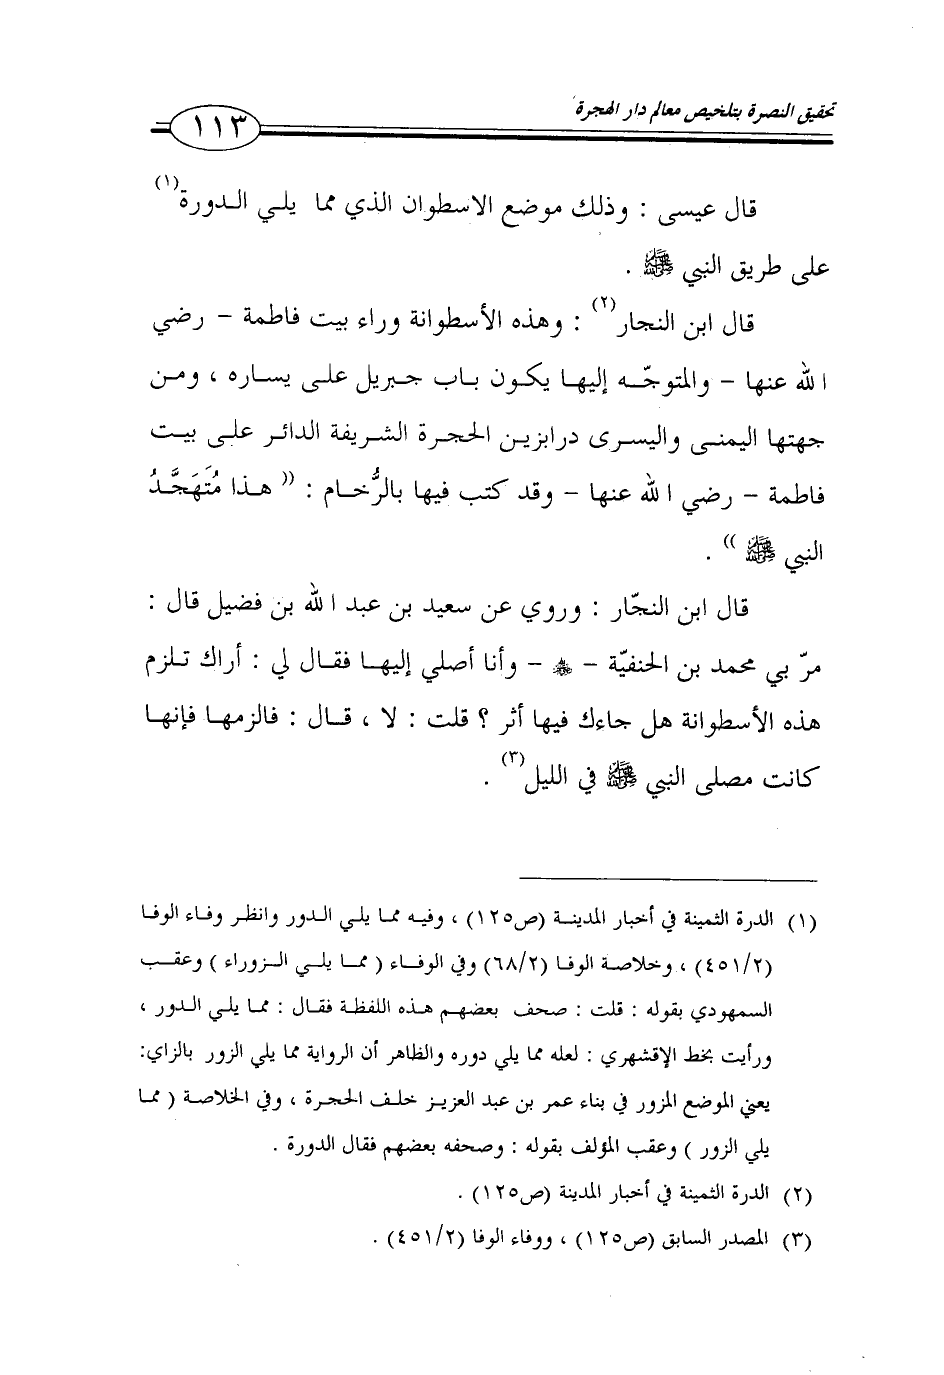 تحقيق النصرة بتلخيص معالم دار الهجرة
١١٣
قال عيسى : وذلك موضع الاسطوان الذي مما يلي الـدورة(١)
على طريق النبي ﷺ .
قال ابن النجار(٢) : وهذه الأسطوانة وراء بيت فاطمة – رضي
الله عنها – والمتوجّـه إليهـا يكـون بـاب جـبريل علـى يسـاره ، ومـن
جهتهـا اليمنـى واليسرى درابزيـن الحجـرة الشـريفة الدائـر علـى بيـت
فاطمة – رضي الله عنها – وقد كتب فيها بالرُّخـام : (( هـذا مُتَهَجَّـدُ
النبي ﷺ )) .
قال ابن النجّار : وروي عن سعيد بن عبد الله بن فضيل قال :
مرّ بي محمد بن الحنفيّة – ﷺ – وأنا أصلي إليهـا فقـال لي : أراك تـلزم
هذه الأسطوانة هل جاءك فيها أثر ؟ قلت : لا ، قـال : فالزمهـا فإنهـا
كانت مصلى النبي ﷺ في الليل(٣) .
(١) الدرة الثمينة في أخبار المدينـة (ص١٢٥) ، وفيـه ممـا يلـي الـدور وانظـر وفـاء الوفـا
(٤٥١/٢) ، وخلاصـة الوفـا (٦٨/٢) وفي الوفـاء ( ممـا يلـي الـزوراء ) وعقـب
السمهودي بقوله : قلت : صحف بعضهـم هـذه اللفظـة فقـال : ممـا يلـي الـدور ،
ورأيت بخط الإقشهري : لعله مما يلي دوره والظاهر أن الرواية مما يلي الزور بالزاي:
يعني الموضع المزور في بناء عمر بن عبد العزيز خلـف الحجـرة ، وفي الخلاصـة ( ممـا
يلي الزور ) وعقب المؤلف بقوله : وصحفه بعضهم فقال الدورة .
(٢) الدرة الثمينة في أخبار المدينة (ص١٢٥) .
(٣) المصدر السابق (ص١٢٥) ، ووفاء الوفا (٤٥١/٢) .